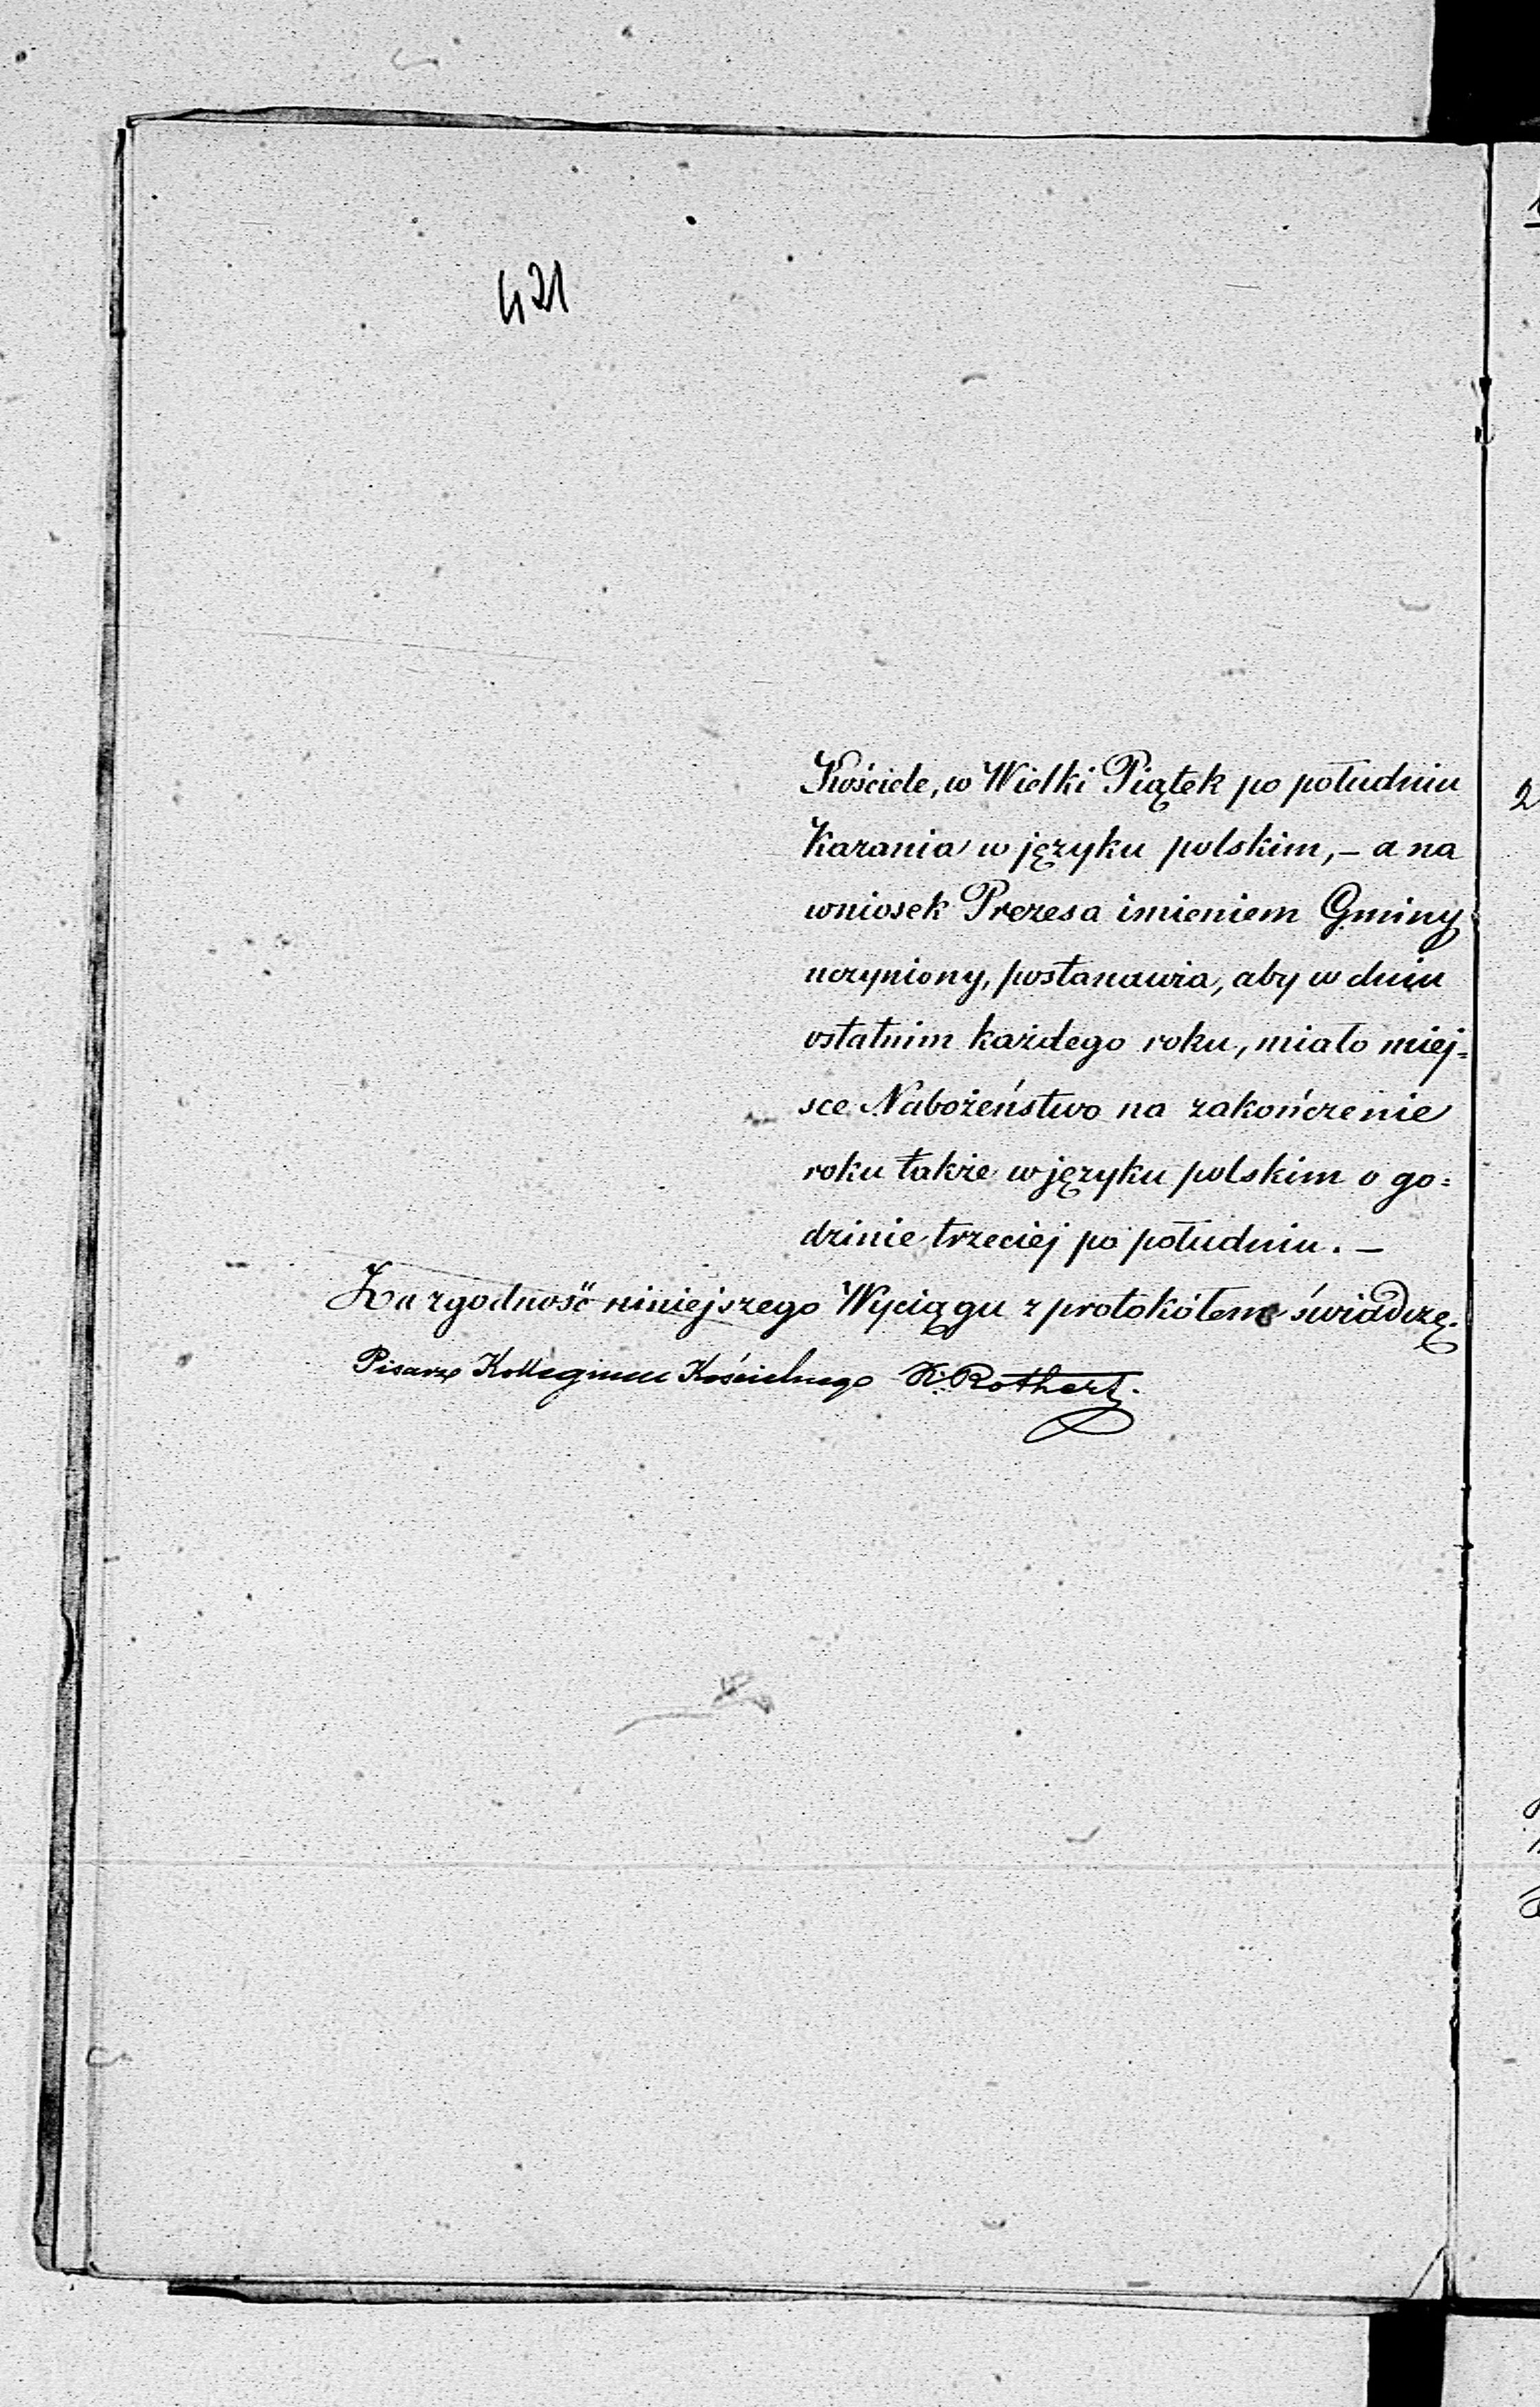 421
Kościele, w Wielki Piątek po południu
Kazania w języku polskim, – a na
wniosek Prezesa imieniem Gminy
uczyniony, postanawia, aby w dniu
ostatnim każdego roku, miało miej=
sce Nabożeństwo na zakończenie
roku także w języku polskim o go=
dzinie trzeciej po południu. –
Za zgodność niniejszego Wyciągu z protokółem świadczę.
Pisarz Kollegium Kościelnego K. Rothert.
2